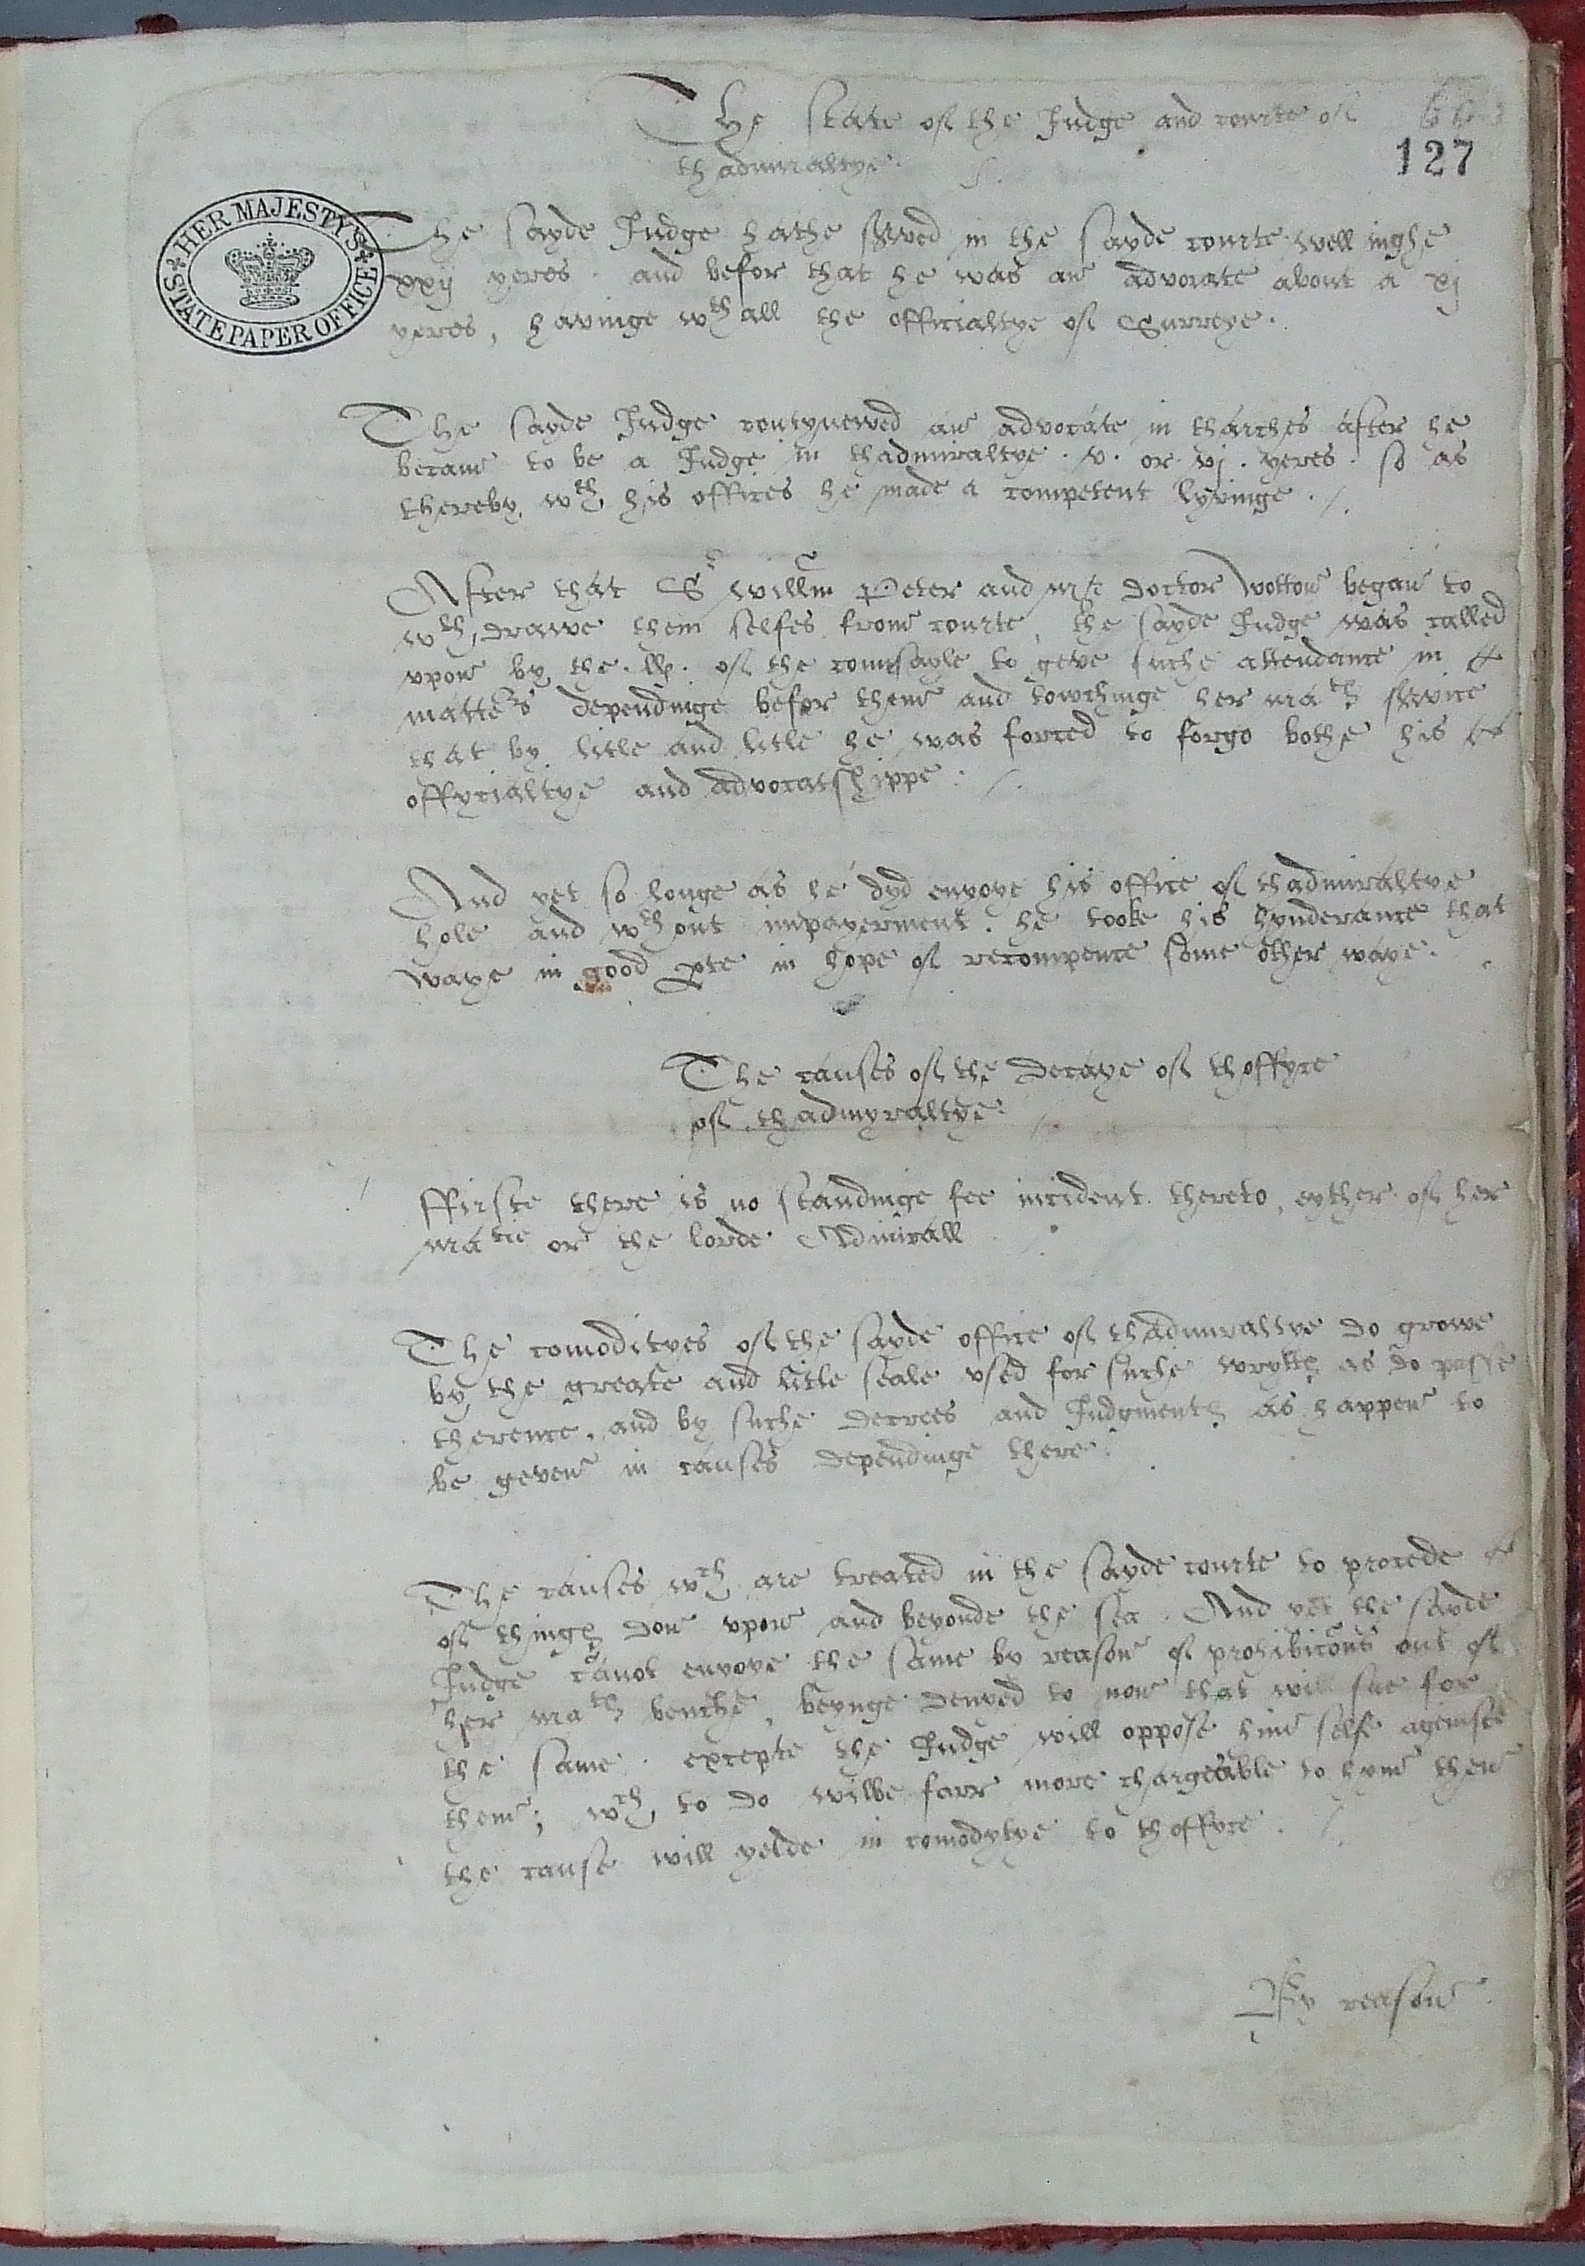 The state of the Judge and courte of
thadmiraltye.
66
127
HER MAJESTY'S
STATE PAPER OFFICE
The sayde Judge hathe served in the sayde courte well nighe
xxij yeres. and befor that he was an advocate about a xj
yeres, havinge wth all the officialtye of Surreye.
The sayde Judge contynewed an advocate in tharches after he
becam to be a Judge in thadmiraltye. v. or vj. yeres. so as
thereby wth his offices he made a competent lyvinge.
After that Sr Willm Peter and mr doctor Wotton began to
wthdrawe them selfes from courte, the sayde Judge was called
upon by the. ll. of the counsayle to geve suche attendance in
matters dependinge befor them and towchinge her maties service
that by litle and litle he was forced to forgo bothe his
offycialtye and advocatshippe.
And yet so longe as he dyd enyoye his office of thadmiraltye
hole and wthout impayerment. he tooke his hynderance that
waye in good pte in hope of recompence some other waye.
The causes of the decaye of thoffyce
of thadmyraltye.
ffirste there is no standinge fee incident thereto, eyther of her
matie or the lorde Admirall
The comodityes of the sayde office of thadmiraltye do growe
by the greate and litle seale used for suche wryttes as do passe
therence, and by suche decrees and Judgmentes as happen to
be geven in causes dependinge there.
The causes wch are treated in the sayde courte to procede
of thinges don upon and beyonde the sea. And yet the sayde
Judge canot enyoye the same by reason of prohibicons out of
her maties benche, beynge denyed to non that will sue for
the same. excepte the Judge will oppose him self ageinste
them; wch to do wilbe farr more chargeable to hym then
the cause will yelde in comodytye to thoffyce.
By reason